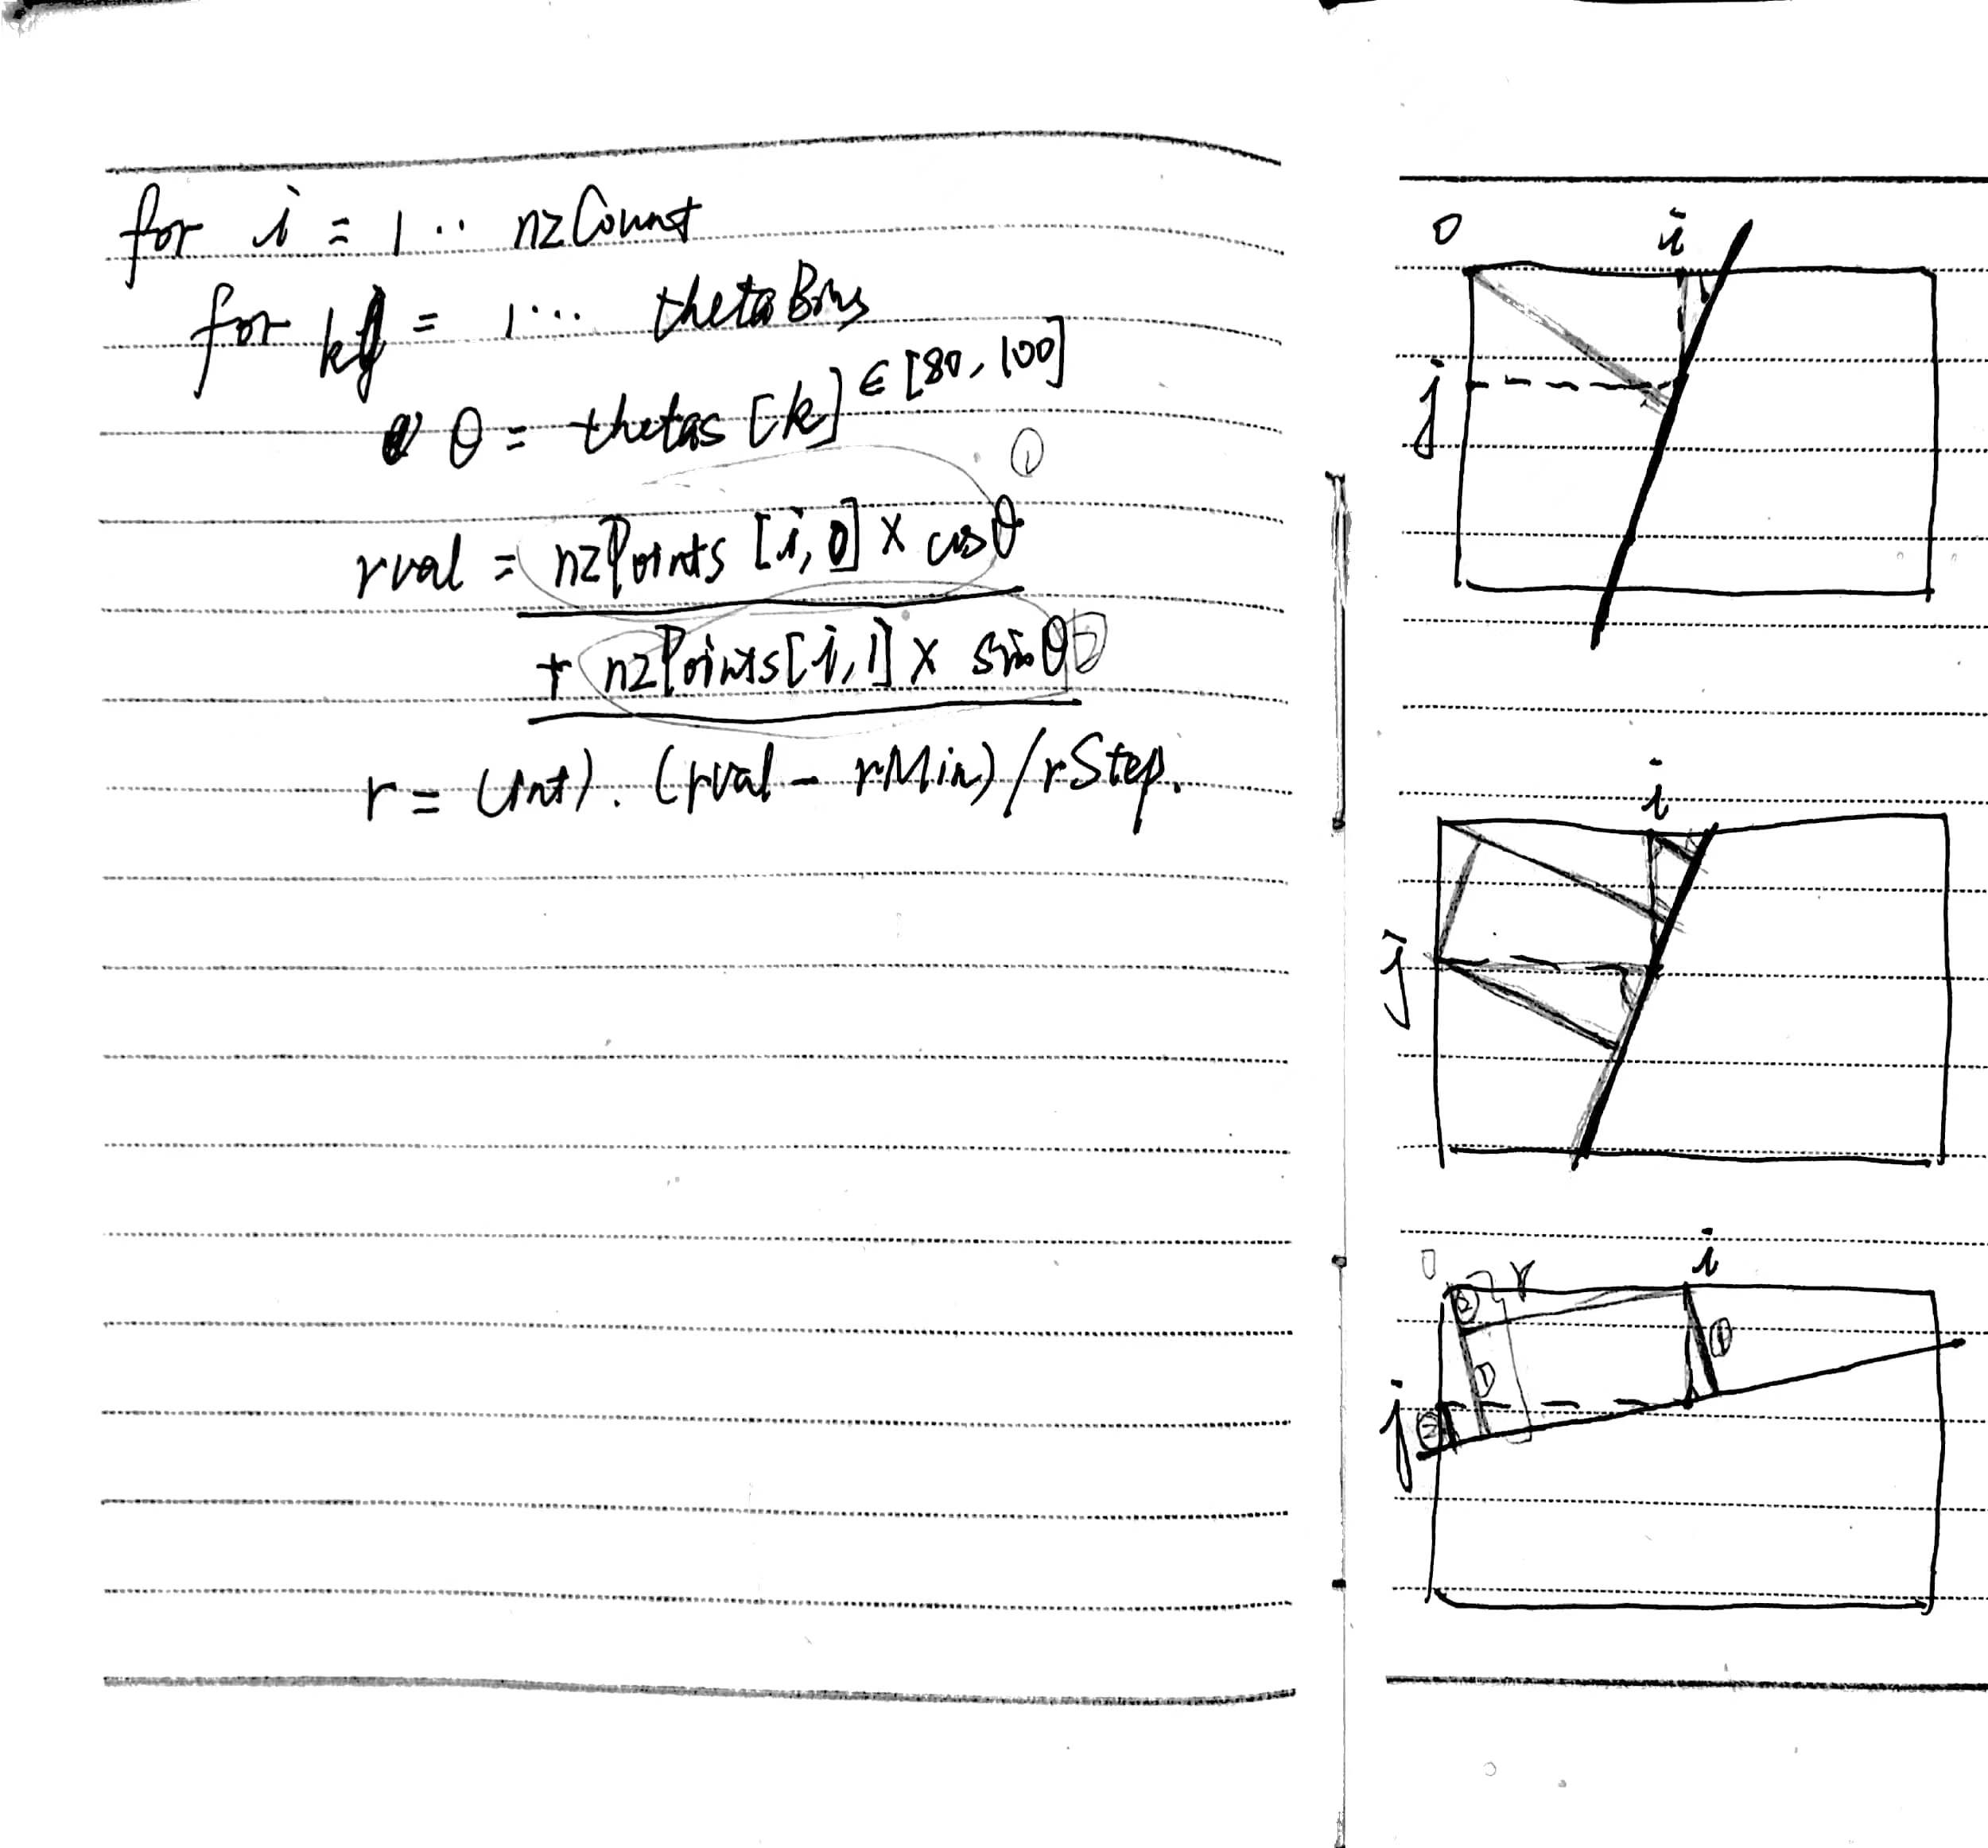 for i = 1 .. nzCount
for k = 1... thetaBins
θ = thetas [k] ∈ [80, 100]
①
rval = nzPoints [i, 0] × cosθ
+ nzPoints [i, 1] × sinθ ②
r = (Int). (rval - rMin) / rStep.
0 i
j
i
j
0 r i
② ①
①
j ②